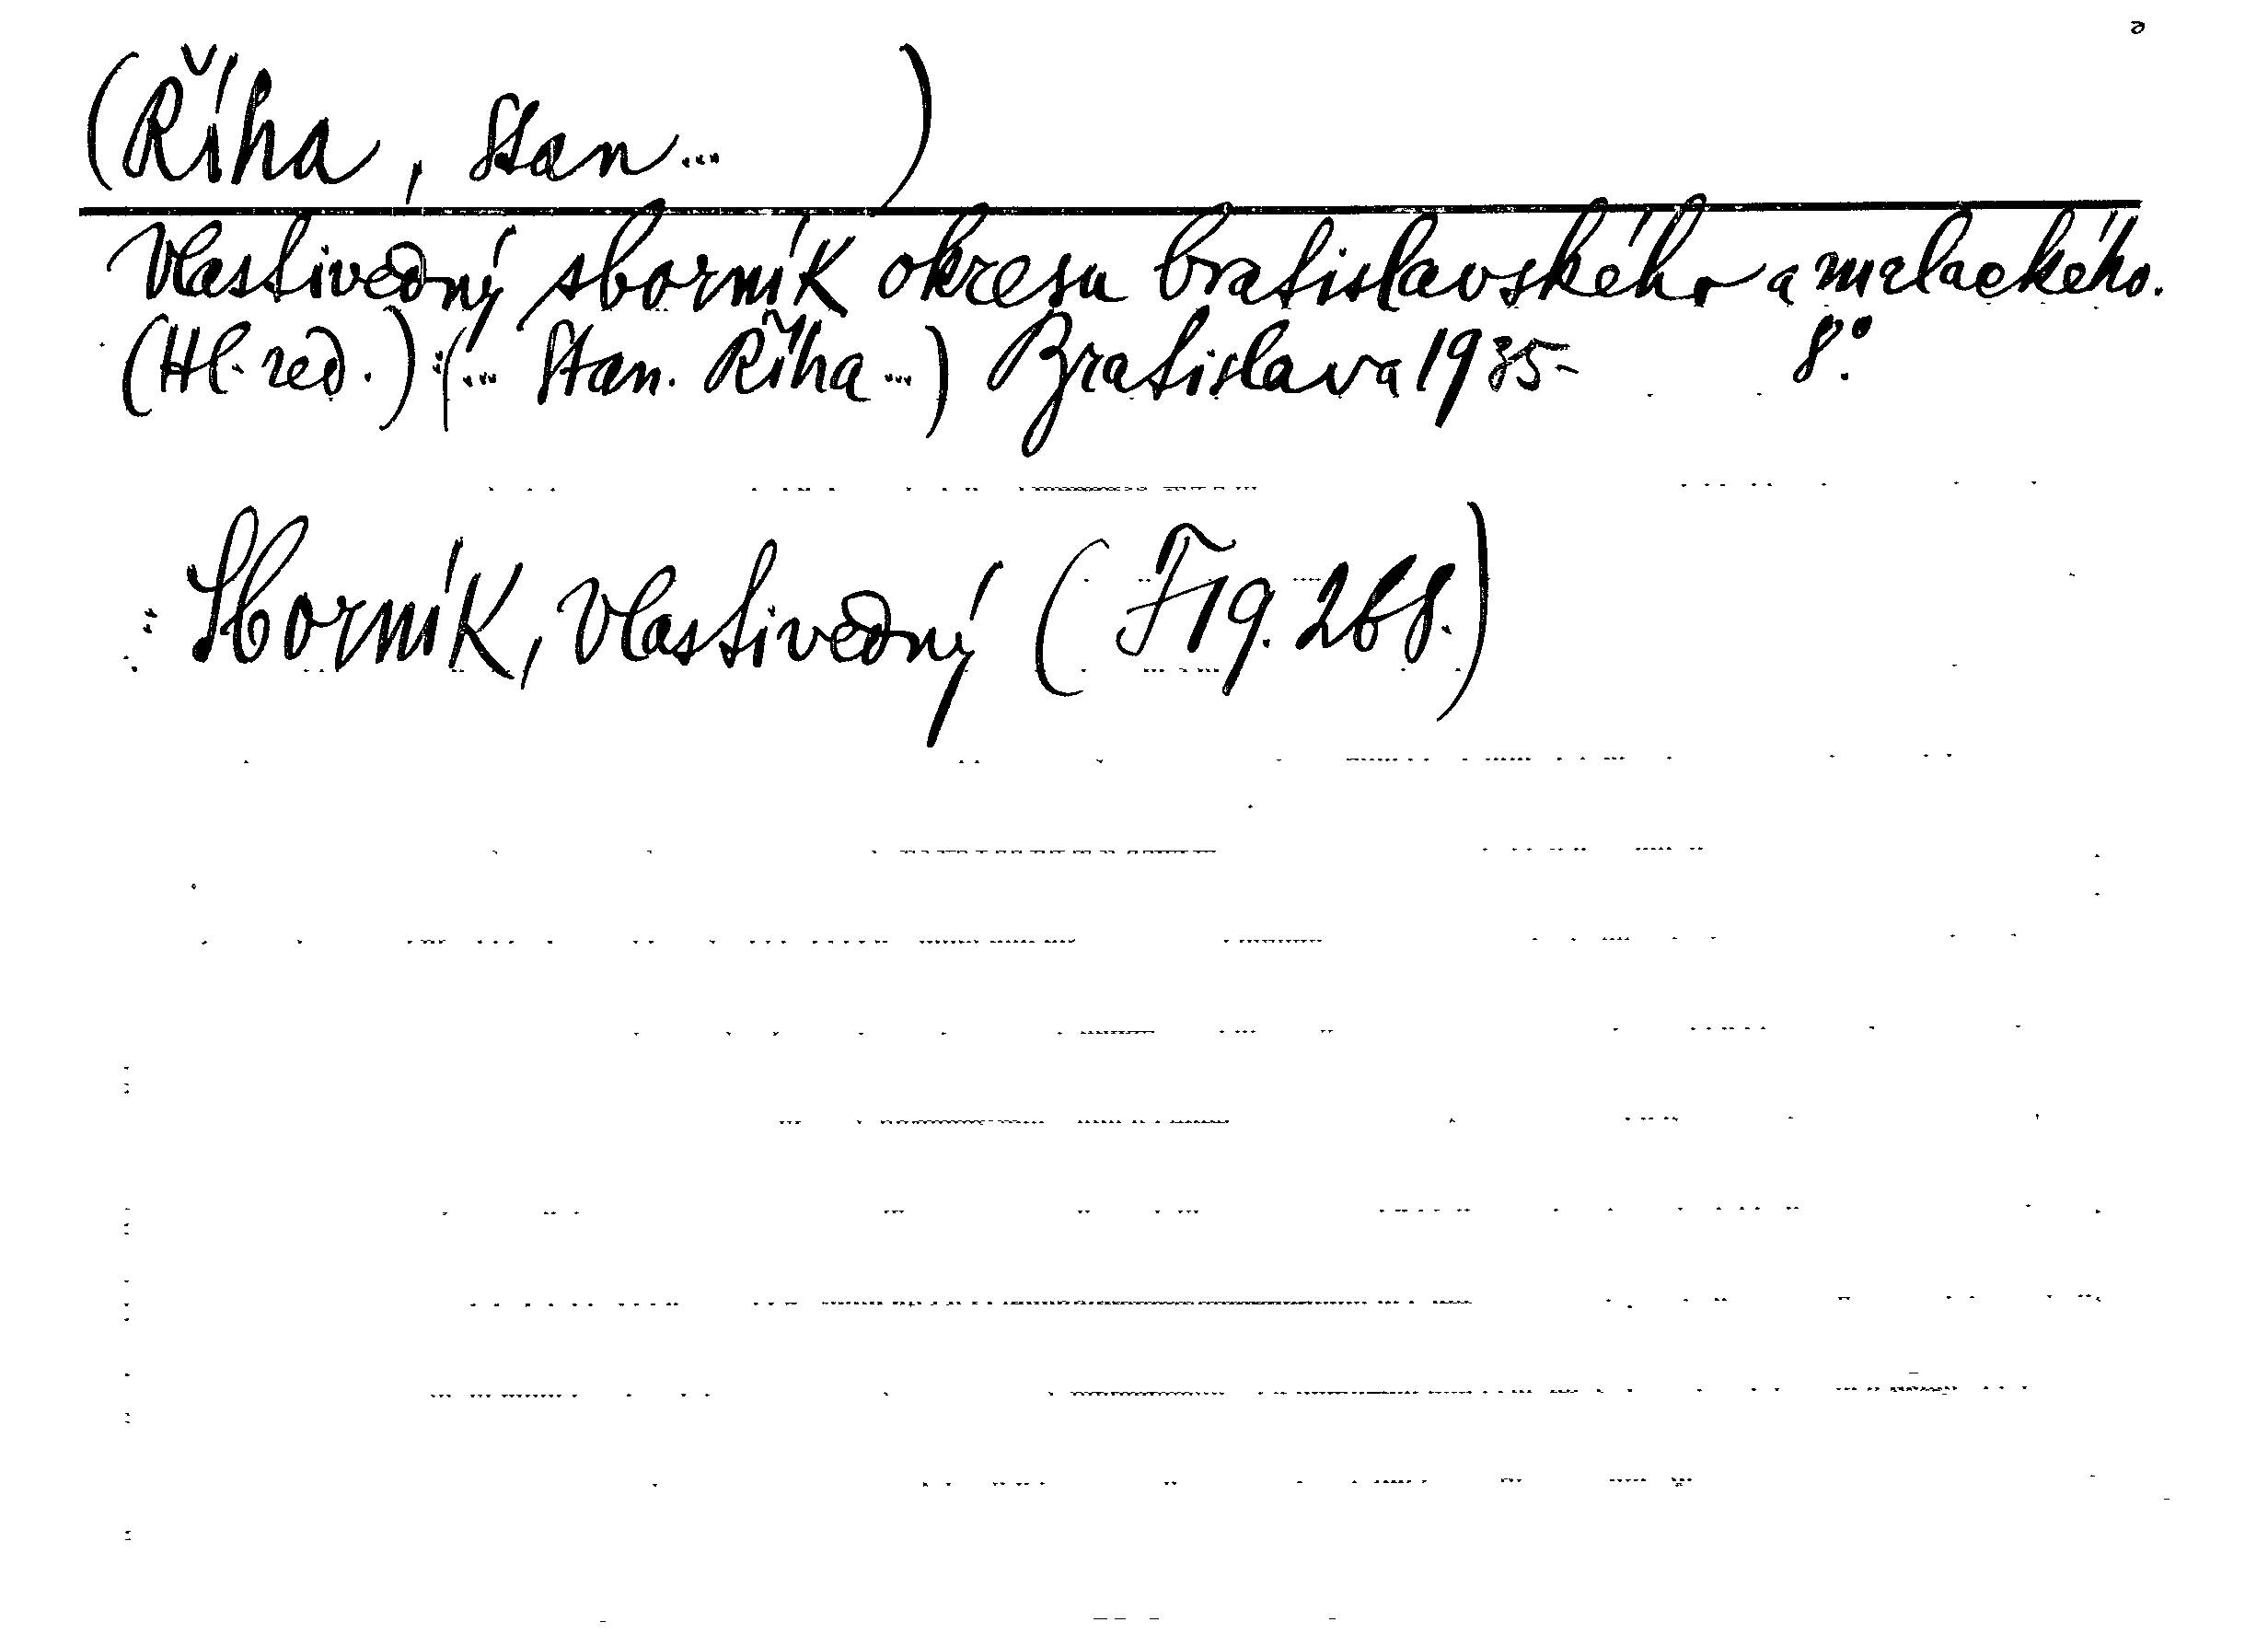 (Říha, Stan... )
Vlastivedný sborník okresu bratislavského a malackého.
(Hl. red.) (... Stan. Říha...) Bratislava 1935- 8°.
Sborník, Vlastivedný (F 19.268.)